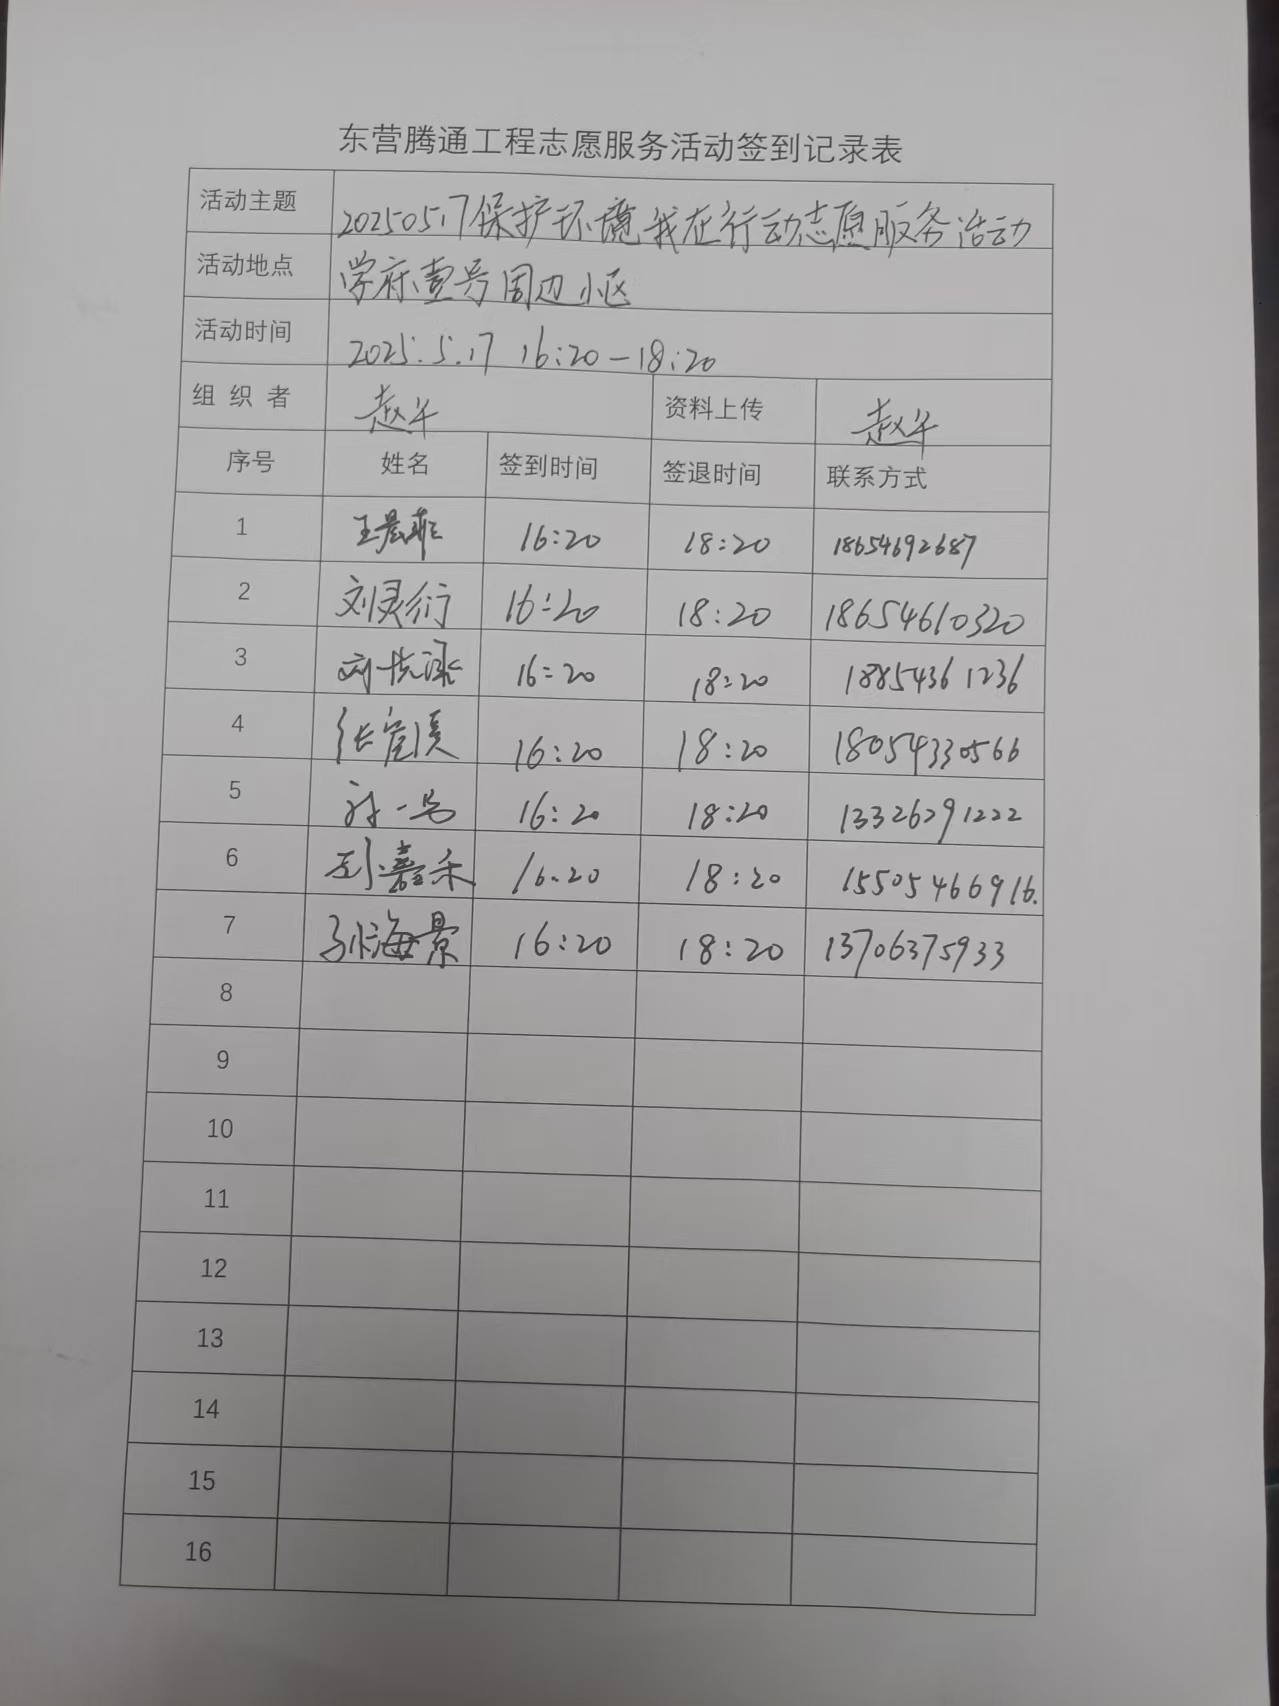 东营腾通工程志愿服务活动签到记录表
活动主题 20250517保护环境我在行动志愿服务活动
活动地点 学府壹号周边小区
活动时间 2025.5.17 16:20-18:20
组 织 者 赵 资料上传 赵
序号 姓名 签到时间 签退时间 联系方式
1 王晨菲 16:20 18:20 18654692687
2 刘灵衍 16:20 18:20 18654610320
3 刘 16:20 18:20 18854361236
4 张 16:20 18:20 18054330566
5 16:20 18:20 13326291222
6 嘉禾 16.20 18:20 15505466916.
7 孙海景 16:20 18:20 13706375933
8
9
10
11
12
13
14
15
16